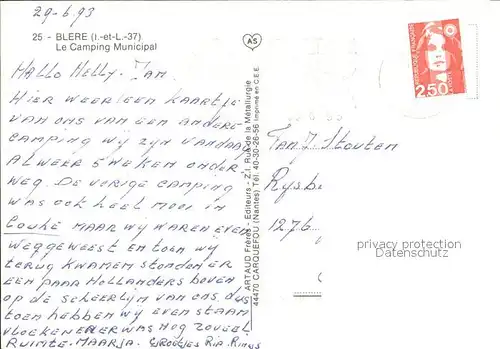 29-6.93
25 - BLERE (I.-et-L.-37)
Le Camping Municipal
Hallo Nelly. Jan.
Hier weer een kaartje
van ons van een andere
camping wij zijn vandaag
alweer 5 weken onder-
weg. De vorige camping
was ook heel mooi in
maar wij waren even
weggeweest en toen wij
terug kwamen stonden er
een paar Hollanders boven
op de scheerlijn van ons dus
toen hebben wij even staan
vloeken en er was nog zoveel
ruimte. Maar ja. Groetjes Ria. Rinus
AS
ARTAUD Frères - Editeurs - Z.I. Rue de la Métallurgie
44470 CARQUEFOU (Nantes) Tél. 40-30-26-56 Imprimé en C.E.E.
REPUBLIQUE FRANÇAISE
2,50
Fam J. Stouten
Rysb
1276
privacy protection
Datenschutz